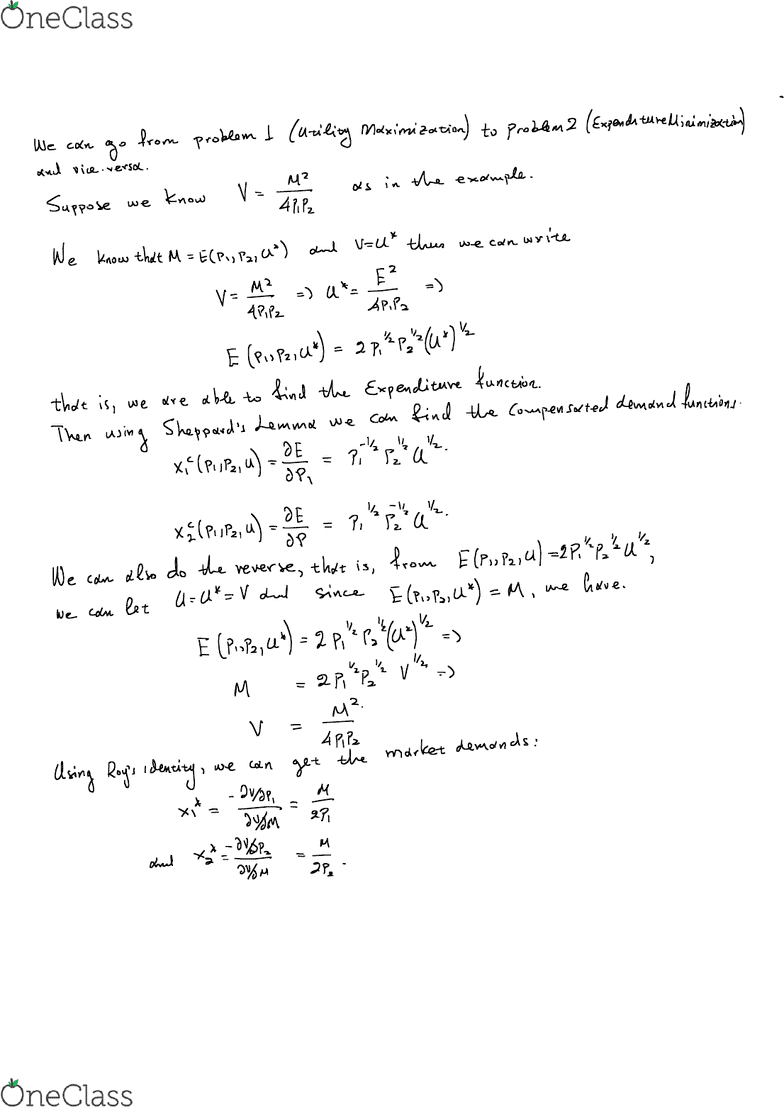 OneClass
We can go from problem 1 (Utility Maximization) to problem 2 (Expenditure Minimization)
and vice-versa.
Suppose we know V = M²/4P₁P₂ as in the example.
We know that M = E(P₁, P₂, U*) and V=U* thus we can write
V = M²/4P₁P₂ => U* = E²/4P₁P₂ =>
E (P₁, P₂, U*) = 2 P₁^½ P₂^½ (U*)^½
that is, we are able to find the Expenditure function.
Then using Sheppard's Lemma we can find the compensated demand functions.
x₁ᶜ(P₁, P₂, U) = ∂E/∂P₁ = P₁^-½ P₂^½ U^½.
x₂ᶜ(P₁, P₂, U) = ∂E/∂P = P₁^½ P₂^-½ U^½.
We can also do the reverse, that is, from E(P₁, P₂, U) = 2P₁^½ P₂^½ U^½,
we can let U = U* = V and since E(P₁, P₂, U*) = M, we have.
E (P₁, P₂, U*) = 2 P₁^½ P₂^½ (U*)^½ =>
M = 2 P₁^½ P₂^½ V^½ =>
V = M²/4P₁P₂
Using Roy's identity, we can get the market demands:
x₁* = -∂V/∂P₁ / ∂V/∂M = M/2P₁
and x₂* = -∂V/∂P₂ / ∂V/∂M = M/2P₂.
OneClass